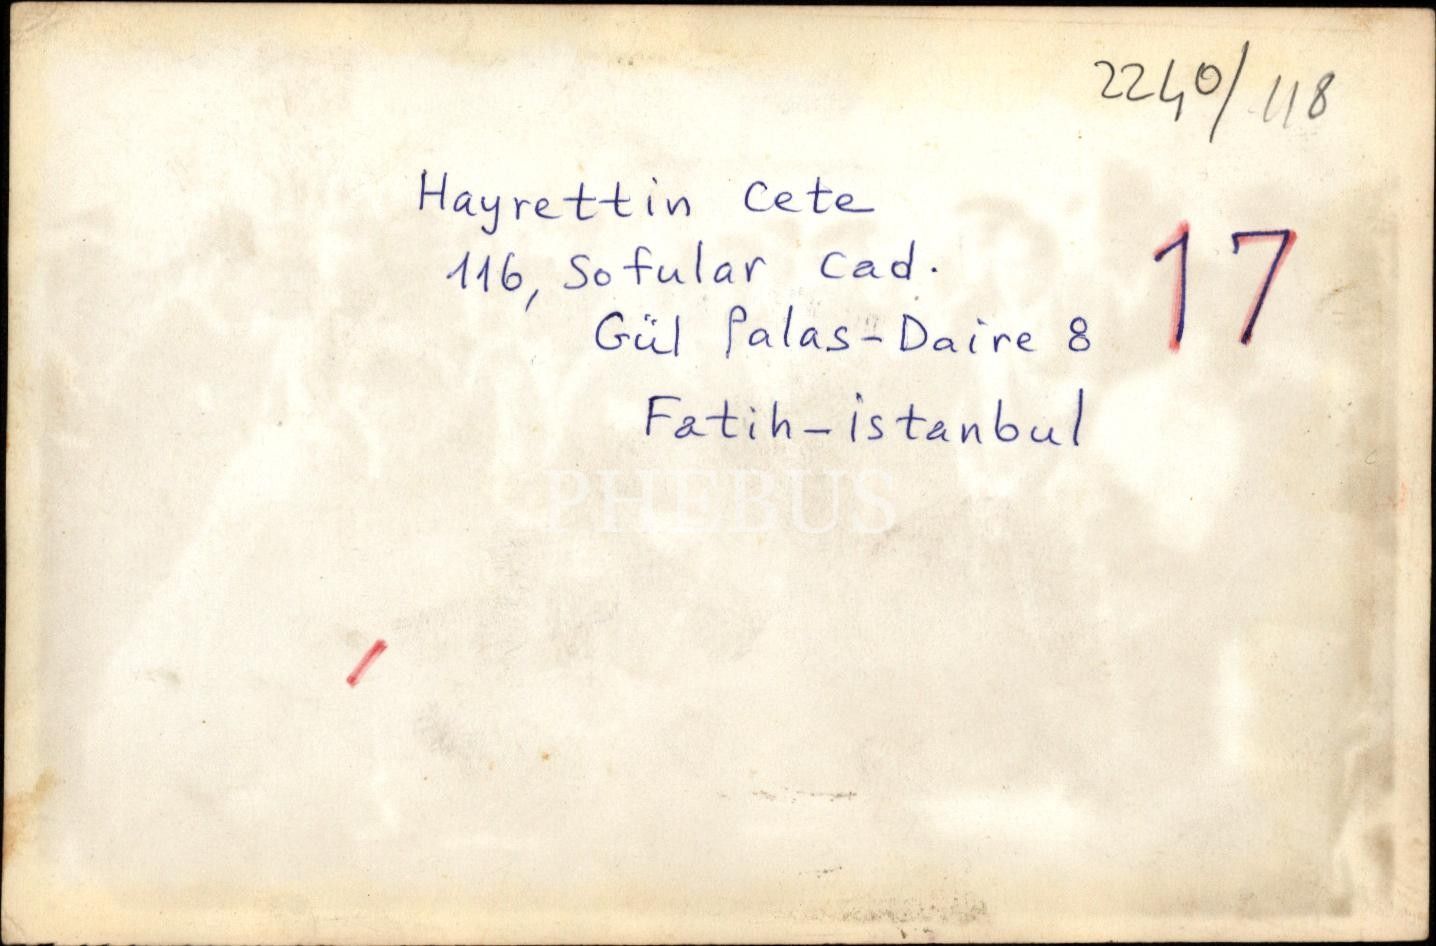 2240/118
Hayrettin Cete
116, Sofular Cad.
17
Gül Palas-Daire 8
Fatih-istanbul
PHEBUS